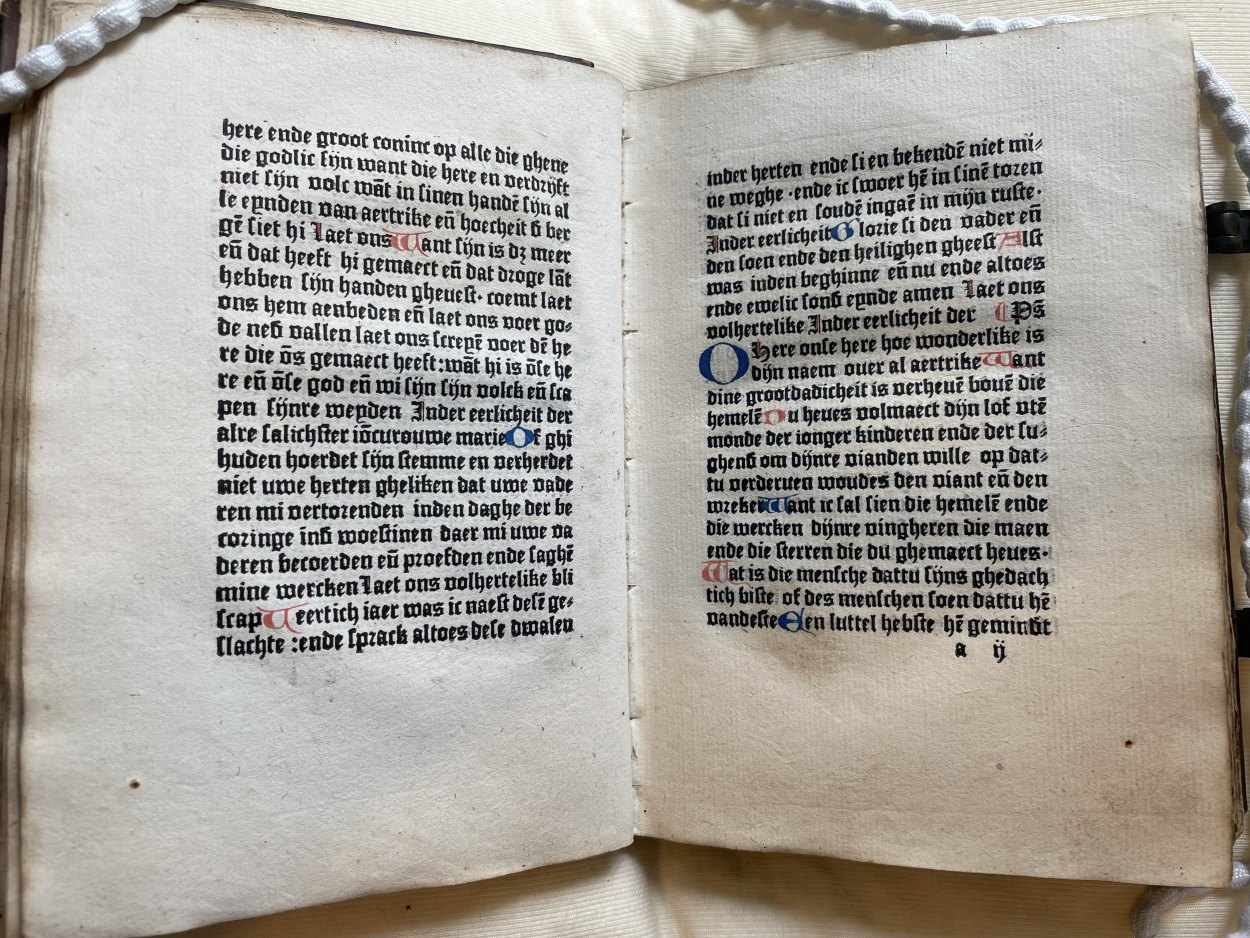 here ende groot coninc op alle die ghene
die godlic sijn want die here en verdrijft
niet sijn volc wāt in sinen handē sijn al
le eynden van aertrike eñ hoecheit ẟ ber
gē siet hi Laet ons Want sijn is dz meer
eñ dat heeft hi gemaect eñ dat droge lāt
hebben sijn handen ghevest. coemt laet
ons hem aenbeden eñ laet ons voer go⸗
de neẟ vallen laet ons screyē voer dē he
re die ōs gemaect heeft: wāt hi is ōse he
re eñ ōse god eñ wi sijn sijn volck eñ sca
pen sijnre weyden Inder eerlicheit der
alre salichster iōcurouwe marie Of ghi
huden hoerdet sijn stemme en verherdet
niet uwe herten gheliken dat uwe vade
ren mi vertorenden inden daghe der be
coringe inẟ woestinen daer mi uwe va
deren becoerden eñ proefden ende saghē
mine wercken Laet ons volhertelike bli
scap Veertich iaer was ic naest desē ge⸗
slachte : ende sprack altoes dese dwalen
inder herten ende si en bekendē niet mi⸗
ne weghe . ende ic swoer hē in sinē toren
dat si niet en soudē ingaē in mijn ruste.
Inder eerlicheit Glorie si den vader eñ
den soen ende den heilighen gheest Alst
was inden beghinne eñ nu ende altoes
ende ewelic sonẟ eynde amen Laet ons
volhertelike Inder eerlicheit der Ps̄
O here onse here hoe wonderlike is
dijn naem over al aertrike Want
dine grootdadicheit is verhevē bovē die
hemelē Du heves volmaect dijn lof vtē
monde der ionger kinderen ende der su⸗
ghenẟ om dijnre vianden wille op dat⸗
tu verderven woudes den viant eñ den
wreker Want ic sal sien die hemelē ende
die wercken dijnre vingheren die maen
ende die sterren die du ghemaect heves.
Wat is die mensche dattu sijns ghedach
tich biste of des menschen soen dattu hē
vandeste Een luttel hebste hē geminẟt
a ij